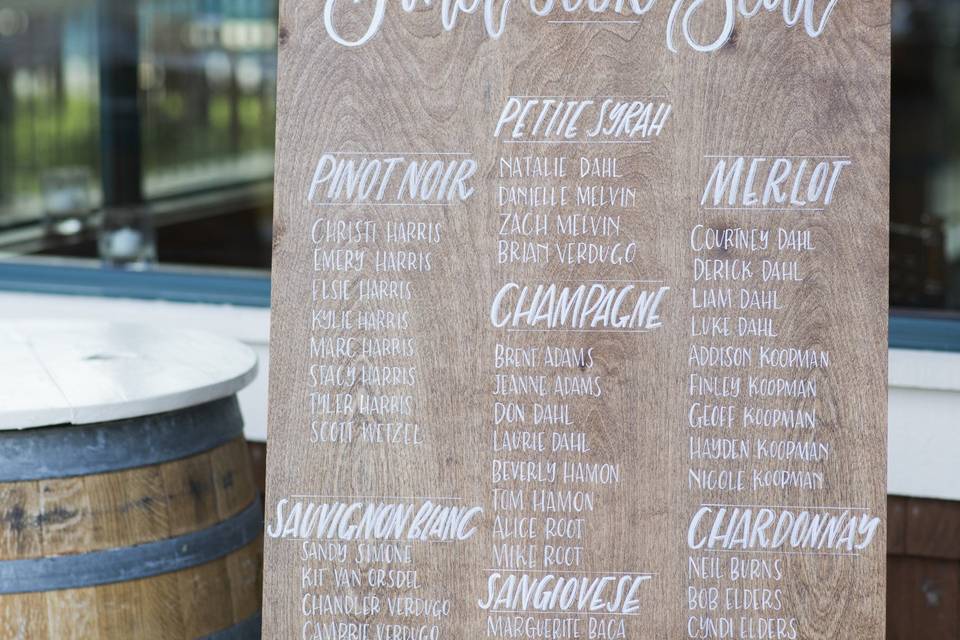 Find your Seat
PINOT NOIR
CHRISTI HARRIS
EMERY HARRIS
ELSIE HARRIS
KYLIE HARRIS
MARC HARRIS
STACY HARRIS
TYLER HARRIS
SCOTT WETZEL
SAUVIGNON BLANC
SANDY SIMONE
KIT VAN ORSDEL
CHANDLER VERDUGO
CAMBRIE VERDUGO
PETITE SYRAH
NATALIE DAHL
DANIELLE MELVIN
ZACH MELVIN
BRIAN VERDUGO
CHAMPAGNE
BRENT ADAMS
JEANNE ADAMS
DON DAHL
LAURIE DAHL
BEVERLY HAMON
TOM HAMON
ALICE ROOT
MIKE ROOT
SANGIOVESE
MARGUERITE BACA
MERLOT
COURTNEY DAHL
DERICK DAHL
LIAM DAHL
LUKE DAHL
ADDISON KOOPMAN
FINLEY KOOPMAN
GEOFF KOOPMAN
HAYDEN KOOPMAN
NICOLE KOOPMAN
CHARDONNAY
NEIL BURNS
BOB ELDERS
CYNDI ELDERS